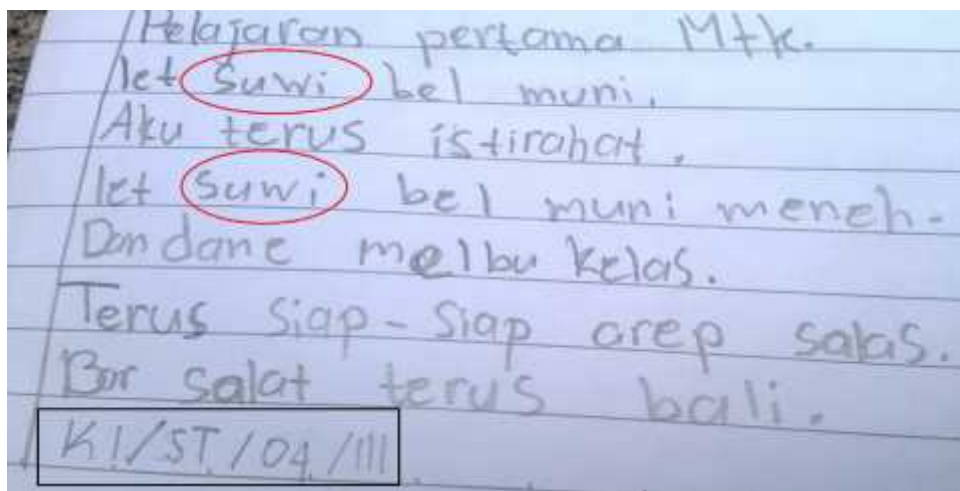 Pelajaran pertama Mtk.
let suwi bel muni.
Aku terus istirahat.
let suwi bel muni meneh.
Dandane melbu kelas.
Terus siap-siap arep salas.
Bar salat terus bali.
K1/ST/04/III